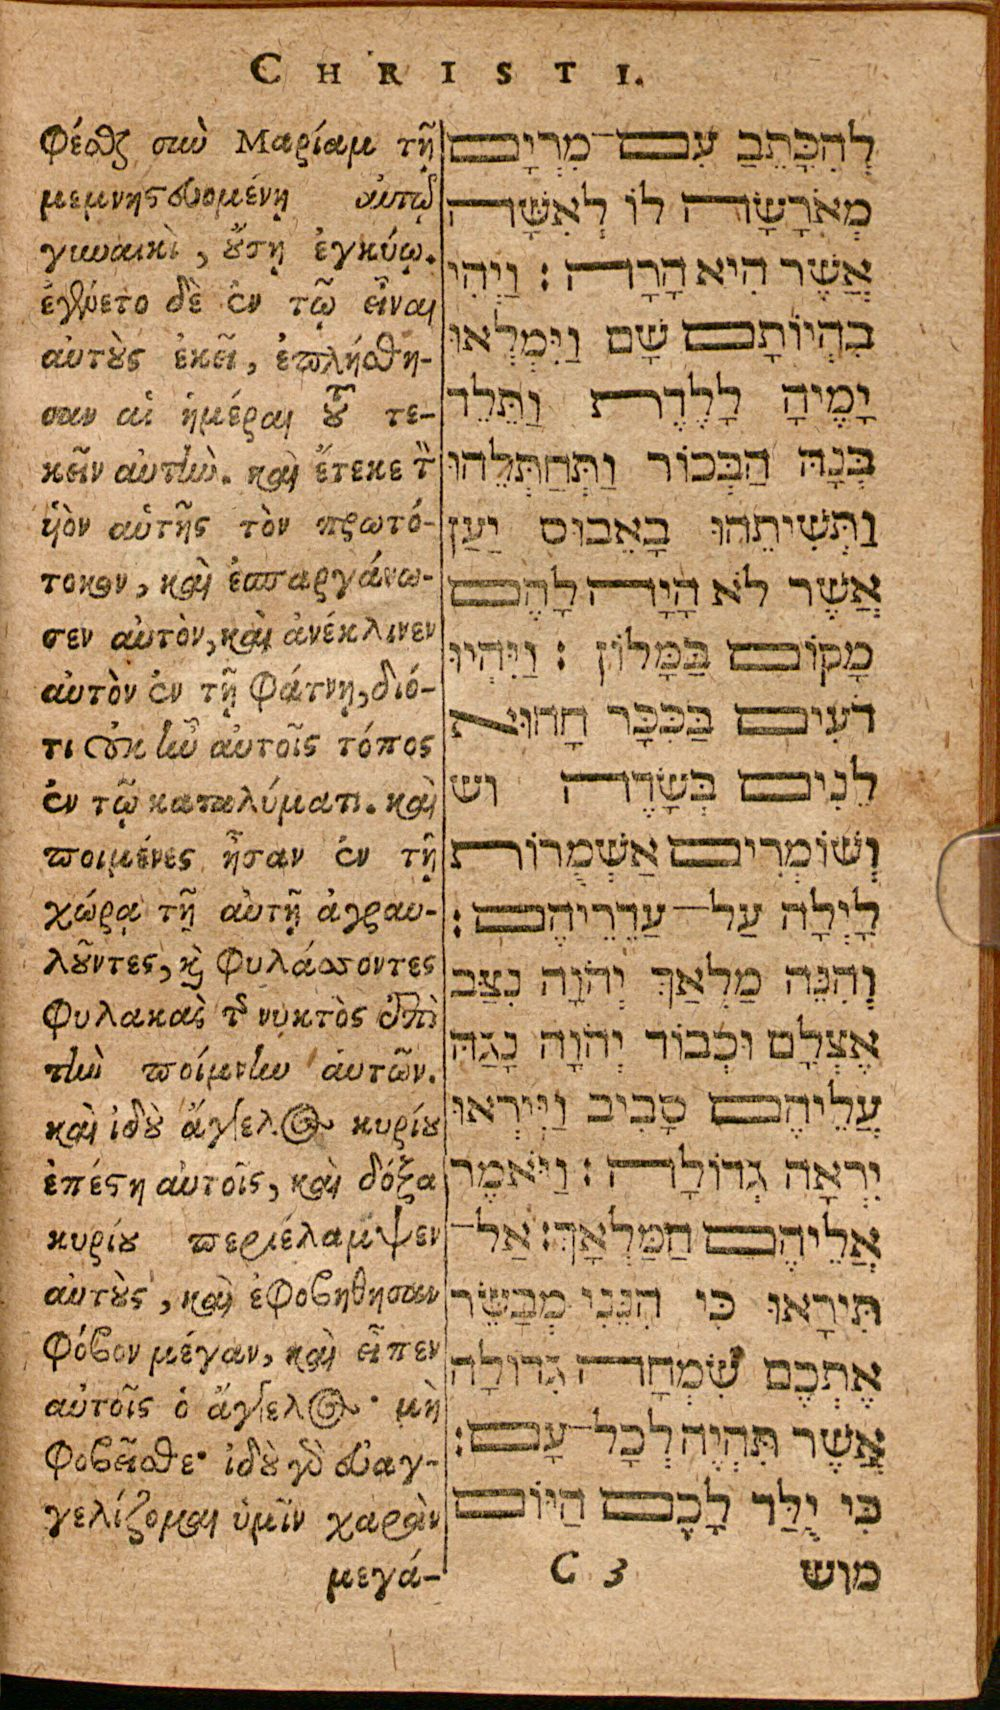 CHRISTI.
φέσθς σὺν Μαρίαμ τῇ
μεμνηστευομένῃ αὐτῷ
γυναικὶ, οὔσῃ ἐγκύῳ.
ἐγένετο δὲ ἐν τῷ εἶναι
αὐτοὺς ἐκεῖ, ἐπλήσθη-
σαν αἱ ἡμέραι τοῦ τε-
κεῖν αὐτὴν. καὶ ἔτεκε τὸν
ὑὸν αὑτῆς τὸν πρωτό-
τοκον, καὶ ἐσπαργάνω-
σεν αὐτὸν, καὶ ἀνέκλινεν
αὐτὸν ἐν τῇ φάτνῃ, διό-
τι οὐκ ἦν αὐτοῖς τόπος
ἐν τῷ καταλύματι. καὶ
ποιμένες ἦσαν ἐν τῇ
χώρᾳ τῇ αὐτῇ ἀγραυ-
λοῦντες, καὶ φυλάσσοντες
φυλακὰς τῆς νυκτὸς ἐπὶ
τὴν ποίμνην αὑτῶν.
καὶ ἰδοὺ ἄγγελος κυρίου
ἐπέστη αὐτοῖς, καὶ δόξα
κυρίου περιέλαμψεν
αὐτοὺς, καὶ ἐφοβηθησαν
φόβον μέγαν, καὶ εἶπεν
αὐτοῖς ὁ ἄγγελος· μὴ
φοβεῖσθε· ἰδοὺ γὰρ εὐαγ-
γελίζομαι ὑμῖν χαρὰν
μεγά-
לְהִכָּתֵב עִם־מִרְיָם
מְאֹרָשָׂה לוֹ לְאִשָּׁה
אֲשֶׁר הִיא הָרָה : וַיְהִי
בִּהְיוֹתָם שָׁם וַיִּמְלְאוּ
יָמֶיהָ לָלֶדֶת וַתֵּלֵד
בְּנָהּ הַבְּכוֹר וַתְּחַתְּלֵהוּ
וַתְּשִׁיתֵהוּ בָאֵבוּס יַעַן
אֲשֶׁר לֹא הָיָה לָהֶם
מָקוֹם בַּמָּלוֹן : וַיִּהְיוּ
רֹעִים בַּכִּכָּר הָהוּא
לֵנִים בְּשָׂדֶה וש
וְשׁוֹמְרִים אַשְׁמֻרוֹת
לָיְלָה עַל־עֶדְרֵיהֶם :
וְהִנֵּה מַלְאַךְ יְהֹוָה נִצַּב
אֶצְלָם וּכְבוֹד יְהֹוָה נָגַהּ
עֲלֵיהֶם סָבִיב וַיִּירְאוּ
יִרְאָה גְדוֹלָה : וַיֹּאמֶר
אֲלֵיהֶם הַמַּלְאָךְ : אַל־
תִּירָאוּ כִּי הִנֵּנִי מְבַשֵּׂר
אֶתְכֶם שִׂמְחָה גְדוֹלָה
אֲשֶׁר תִּהְיֶה לְכָל־עָם :
כִּי יֻלַּד לָכֶם הַיּוֹם
C 3
מוש